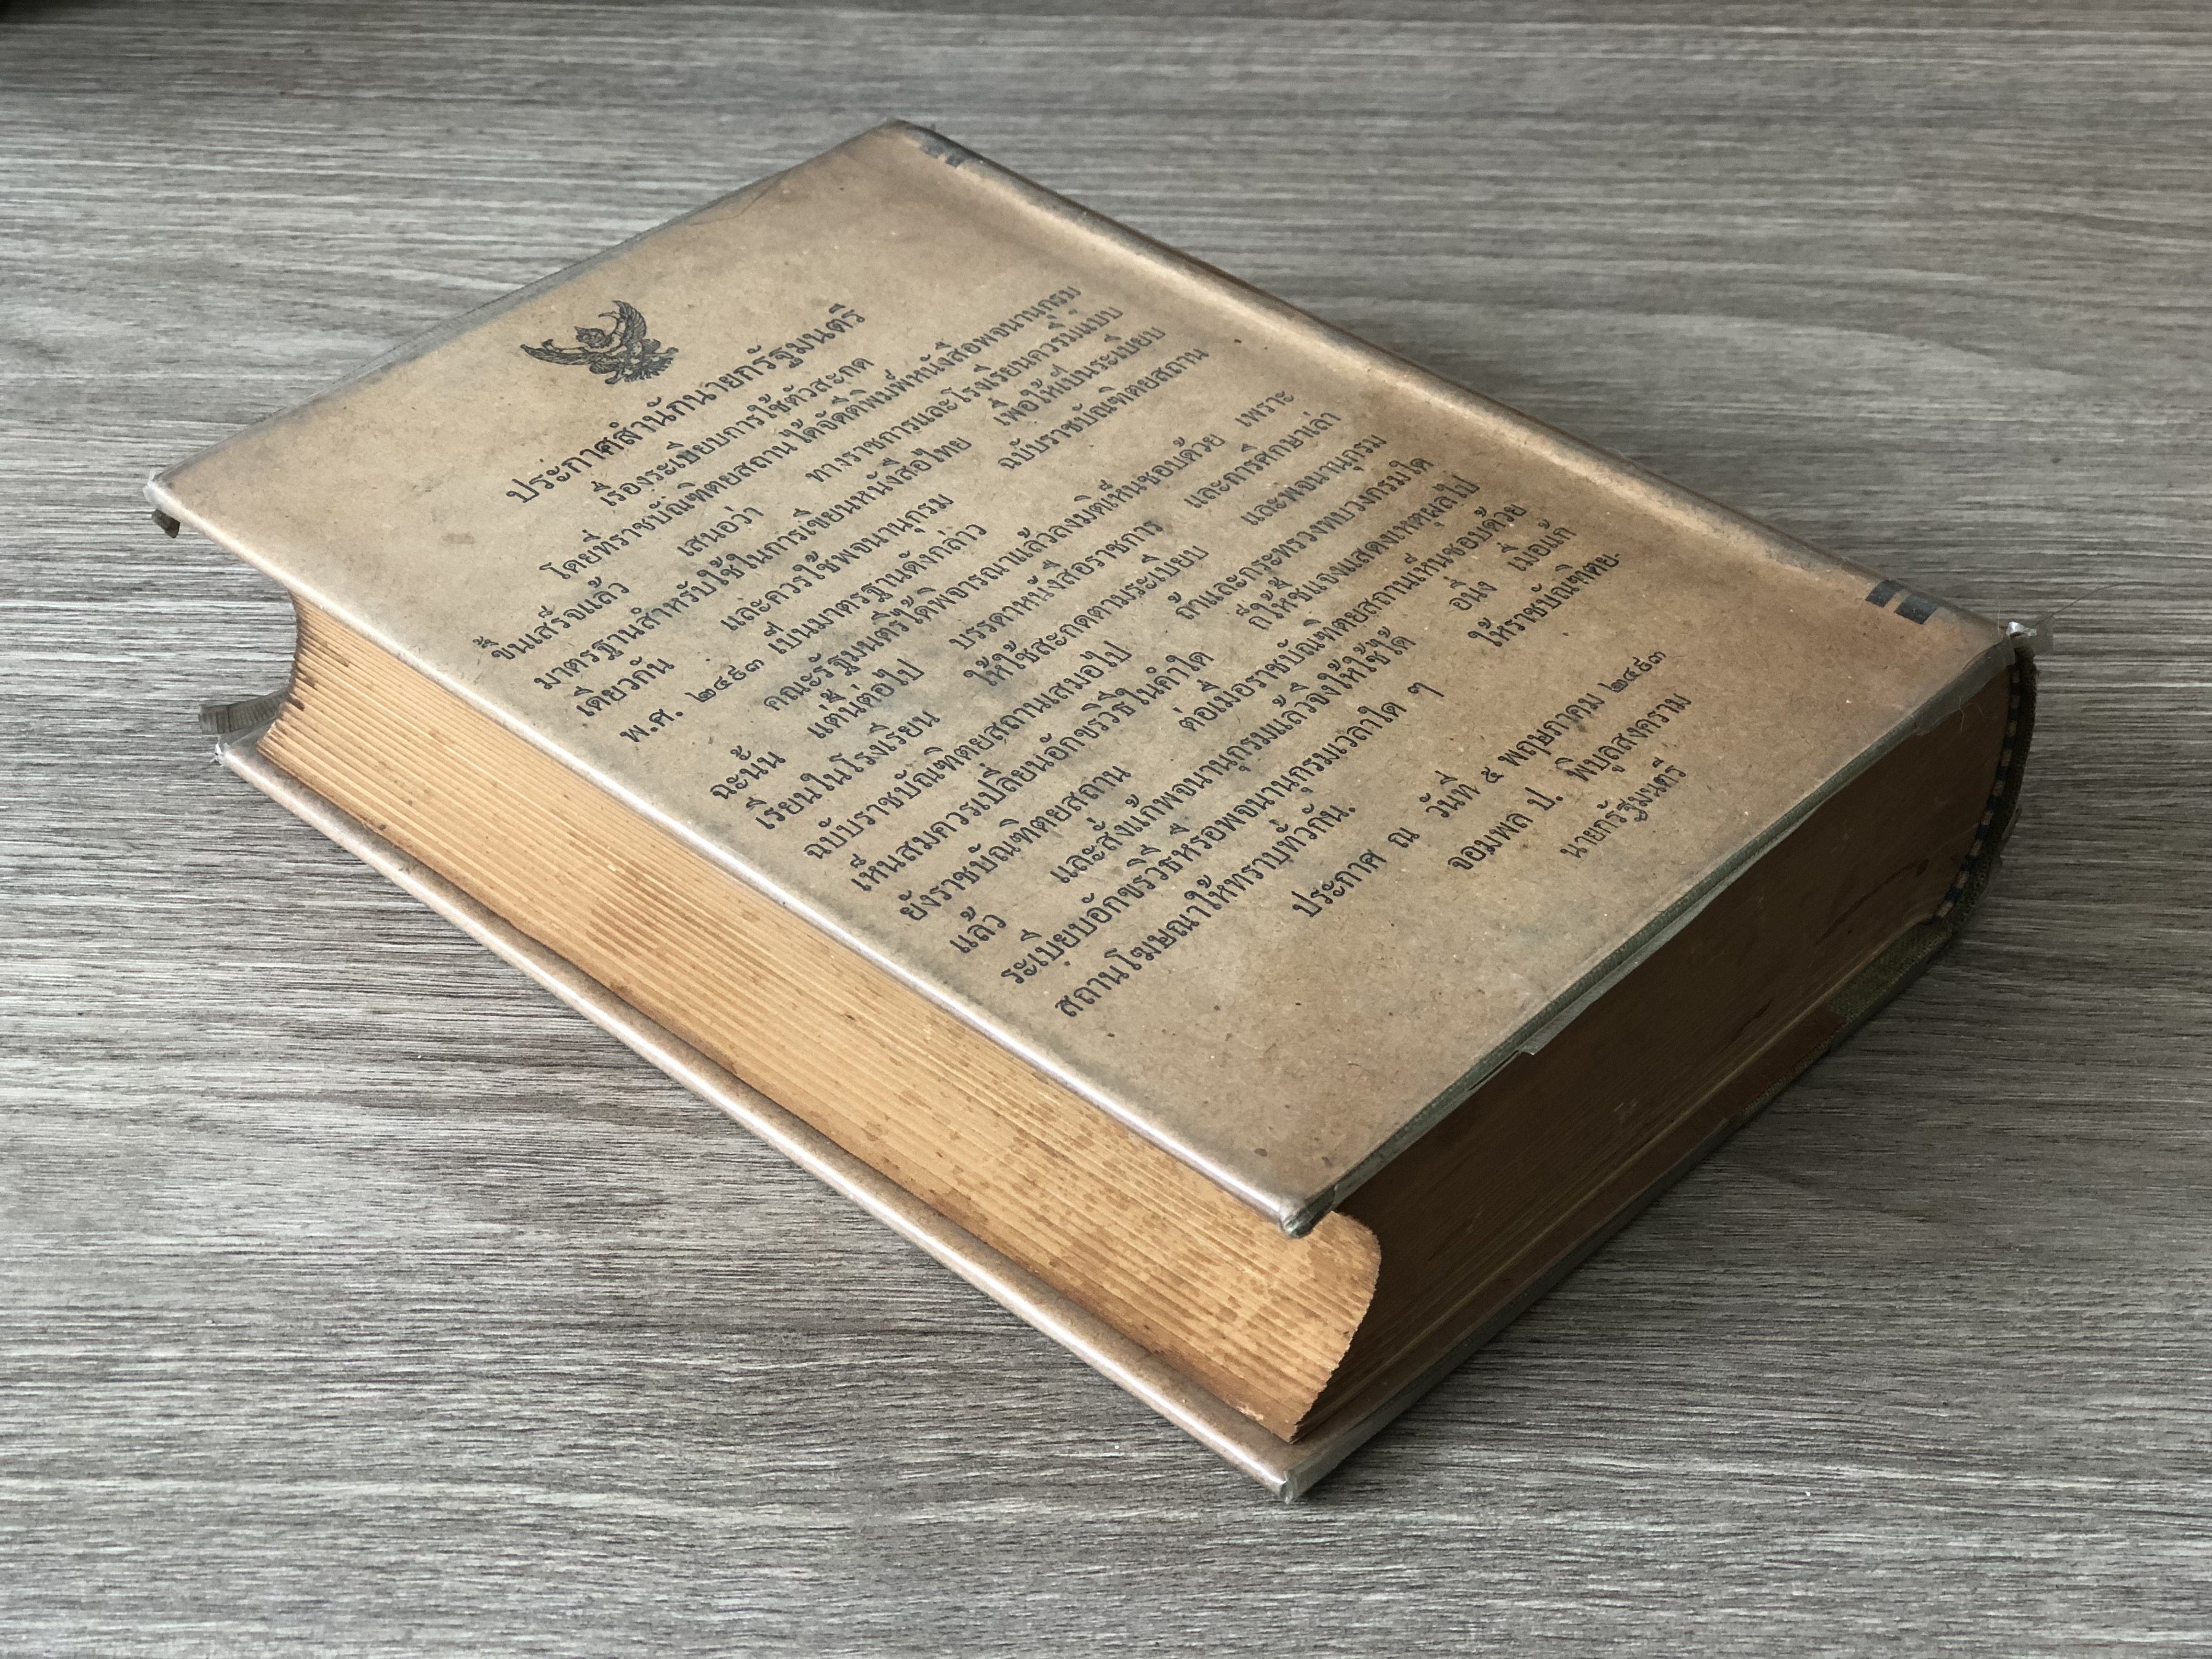 ประกาศสำนักนายกรัฐมนตรี
เรื่องระเบียบการใช้ตัวสะกด
โดยที่ราชบัณฑิตยสถานได้จัดตีพิมพ์หนังสือพจนานุกรม
ขึ้นเสร็จแล้ว เสนอว่า ทางราชการและโรงเรียนควรมีแบบ
มาตรฐานสำหรับใช้ในการเขียนหนังสือไทย เพื่อให้เป็นระเบียบ
เดียวกัน และควรใช้พจนานุกรม ฉบับราชบัณฑิตยสถาน
พ.ศ. ๒๔๙๓ เป็นมาตรฐานดังกล่าว
คณะรัฐมนตรีได้พิจารณาแล้วลงมติเห็นชอบด้วย เพราะ
ฉะนั้น แต่นี้ต่อไป บรรดาหนังสือราชการ และการศึกษาเล่า
เรียนในโรงเรียน ให้ใช้สะกดตามระเบียบ และพจนานุกรม
ฉบับราชบัณฑิตยสถานเสมอไป ถ้าและกระทรวงทบวงกรมใด
เห็นสมควรเปลี่ยนอักขรวิธีในคำใด ก็ให้ชี้แจงแสดงเหตุผลไป
ยังราชบัณฑิตยสถาน ต่อเมื่อราชบัณฑิตยสถานเห็นชอบด้วย
แล้ว และสั่งแก้พจนานุกรมแล้วจึงให้ใช้ได้ อนึ่ง เมื่อแก้
ระเบียบอักขรวิธีหรือพจนานุกรมเวลาใด ๆ ให้ราชบัณฑิตย-
สถานโฆษณาให้ทราบทั่วกัน.
ประกาศ ณ วันที่ ๕ พฤษภาคม ๒๔๙๓
จอมพล ป. พิบูลสงคราม
นายกรัฐมนตรี